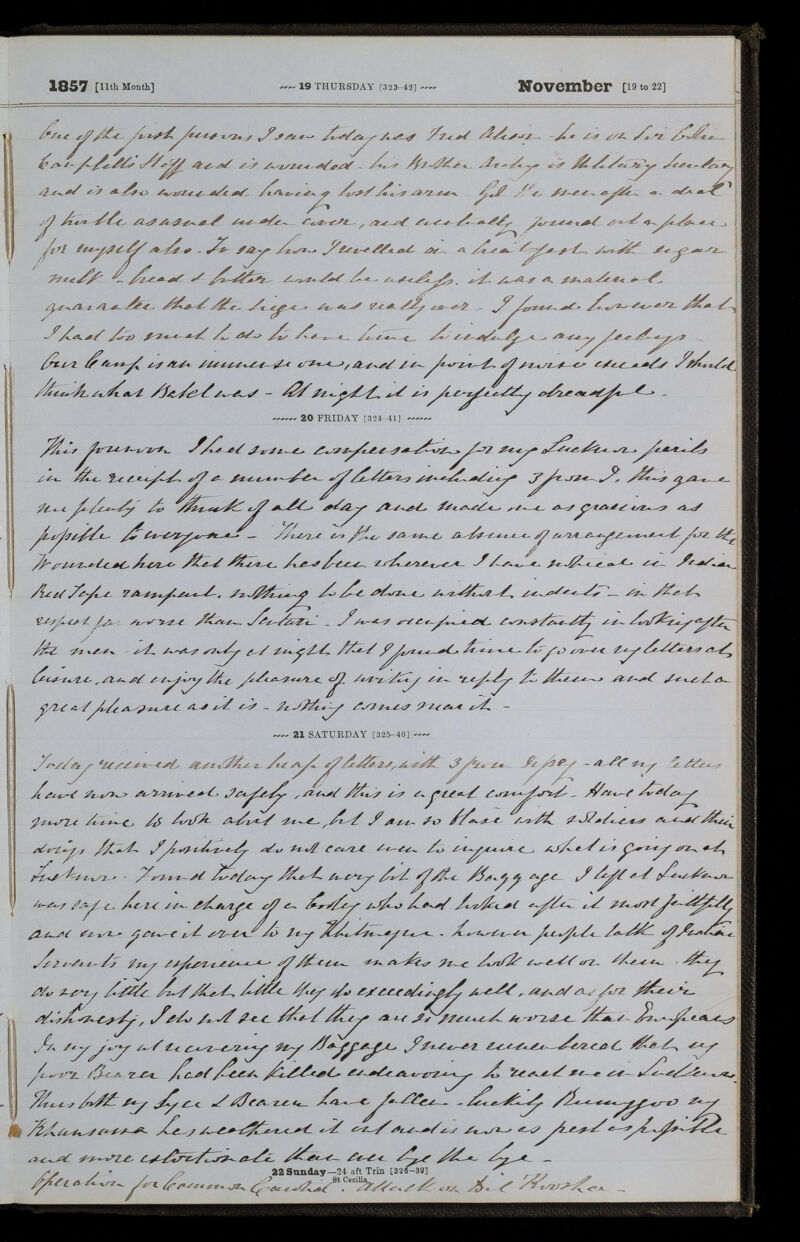 1857 [11th Month] ---- 19 THURSDAY [323-42] ---- November [19 to 22]
One of the first persons I saw today was Fred Alison - he is on Sir Colin
Campbell's Staff and is wounded - his Brother Archy is Military Secretary
and is also wounded having lost his arm - Got the men after a deal
of trouble as usual under cover, and eventually found out a place
for myself also - To say how I revelled in a breakfast with sugar
milk - bread & butter would be useless. it was a material
guarantee that the siege was really over - I found however that
I had too much to do to have time to indulge any feelings -
Our Camp is an immense one, and in point of noise exceeds I should
think what Babel was - At night it is perfectly dreadful -
------ 20 FRIDAY [324-41] ------
This forenoon I had some compensation for my Lucknow perils
in the receipt of a number of letters including 3 from I. this gave
me plenty to think of all day and made me as gracious as
possible to everyone - There is the same absence of arrangement for the
Wounded here that there has been wherever I have noticed in India
Red Tape rampant. nothing to be done without indents - in that
respect far worse than Scutari - I was occupied constantly in looking after
the men - it was only at night that I found time to go over my letters at
leisure, and enjoy the pleasure of writing in reply to them and such a
great pleasure as it is - nothing comes near it -
---- 21 SATURDAY [325-40] ----
Today received another heap of letters, with 3 from - all my letters
have now arrived safely, and this is a great comfort - Have today
more time to look about me, but I am so blasé with soldiers and their
doings that I positively do not care even to inquire what is going on at
Lucknow - Found today that every bit of the Baggage I left at Lucknow
was safe here in charge of a Cooley who had looked after it most faithfully
and now gave it over to my Khitmegur - however people talk of Indian
Servants my experience of them makes me look well on them - they
do very little but that little they do exceedingly well, and as for their
dishonesty, I do not see that they are so much worse than Europeans
In my joy at recovering my Baggage I never remembered that my
poor Bearer had been killed endeavoring to reach me in Lucknow.
Thus both my Syce & Bearer have fallen - luckily my
Khansama has weathered it out and is now as as possible
and more extortionate than ever bye the bye -
22 Sunday—24 aft Trin [326-39]
St Cecilia
Operation for Common Carotid. Attack on Dil Koosha -